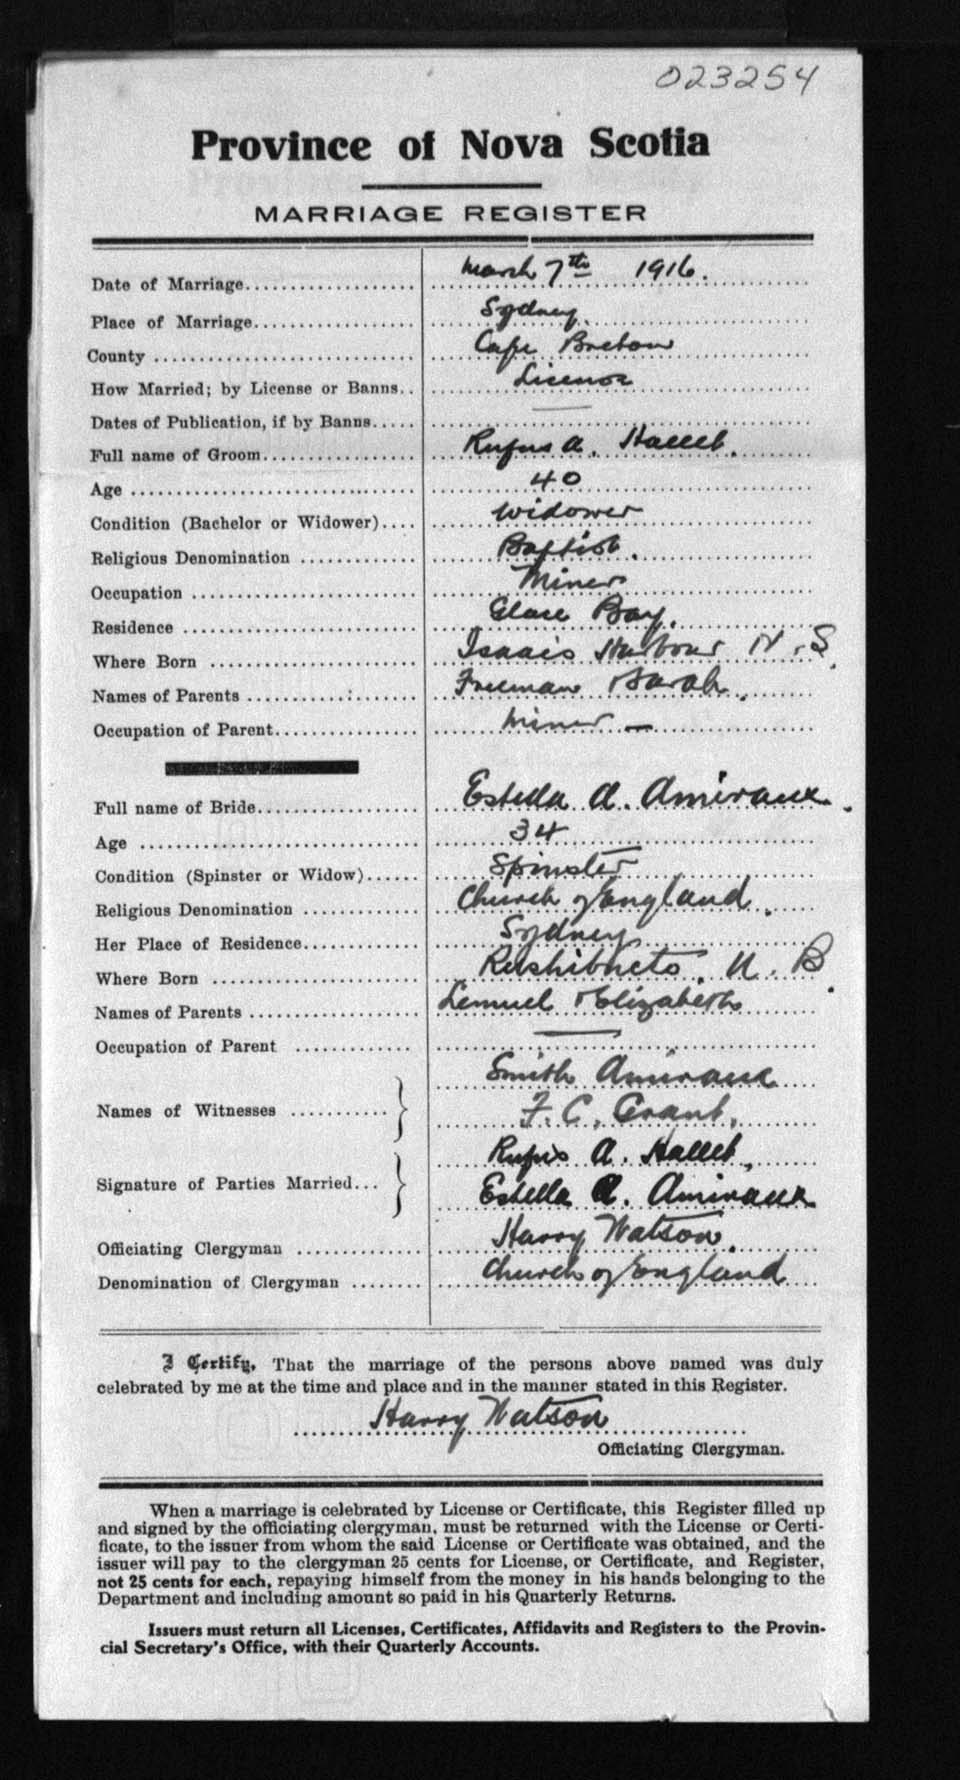 023254
Province of Nova Scotia
MARRIAGE REGISTER
Date of Marriage................... March 7th 1916.
Place of Marriage.................. Sydney.
County ............................ Cape Breton
How Married; by License or Banns.. License
Dates of Publication, if by Banns..... —
Full name of Groom................. Rufus A. Hallett.
Age ............................... 40
Condition (Bachelor or Widower).... Widower
Religious Denomination ............. Baptist.
Occupation ........................ Miner
Residence ......................... Glace Bay.
Where Born ........................ Isaacs Harbour N.S.
Names of Parents ................... Freeman Sarah.
Occupation of Parent................ Miner —
Full name of Bride.................. Estella A. Amiraux.
Age ............................... 34
Condition (Spinster or Widow)...... Spinster
Religious Denomination ............. Church of England.
Her Place of Residence............. Sydney
Where Born ........................ N. B.
Names of Parents ................... Lemuel & Elizabeth
Occupation of Parent .............. —
Smith Amiraux
Names of Witnesses ........... }
F. C. Grant.
Rufus A. Hallett.
Signature of Parties Married... }
Estella A. Amiraux
Officiating Clergyman .............. Harry Watson.
Denomination of Clergyman ........ Church of England
I Certify, That the marriage of the persons above named was duly
celebrated by me at the time and place and in the manner stated in this Register.
Harry Watson
Officiating Clergyman.
When a marriage is celebrated by License or Certificate, this Register filled up
and signed by the officiating clergyman, must be returned with the License or Certi-
ficate, to the issuer from whom the said License or Certificate was obtained, and the
issuer will pay to the clergyman 25 cents for License, or Certificate, and Register,
not 25 cents for each, repaying himself from the money in his hands belonging to the
Department and including amount so paid in his Quarterly Returns.
Issuers must return all Licenses, Certificates, Affidavits and Registers to the Provin-
cial Secretary's Office, with their Quarterly Accounts.